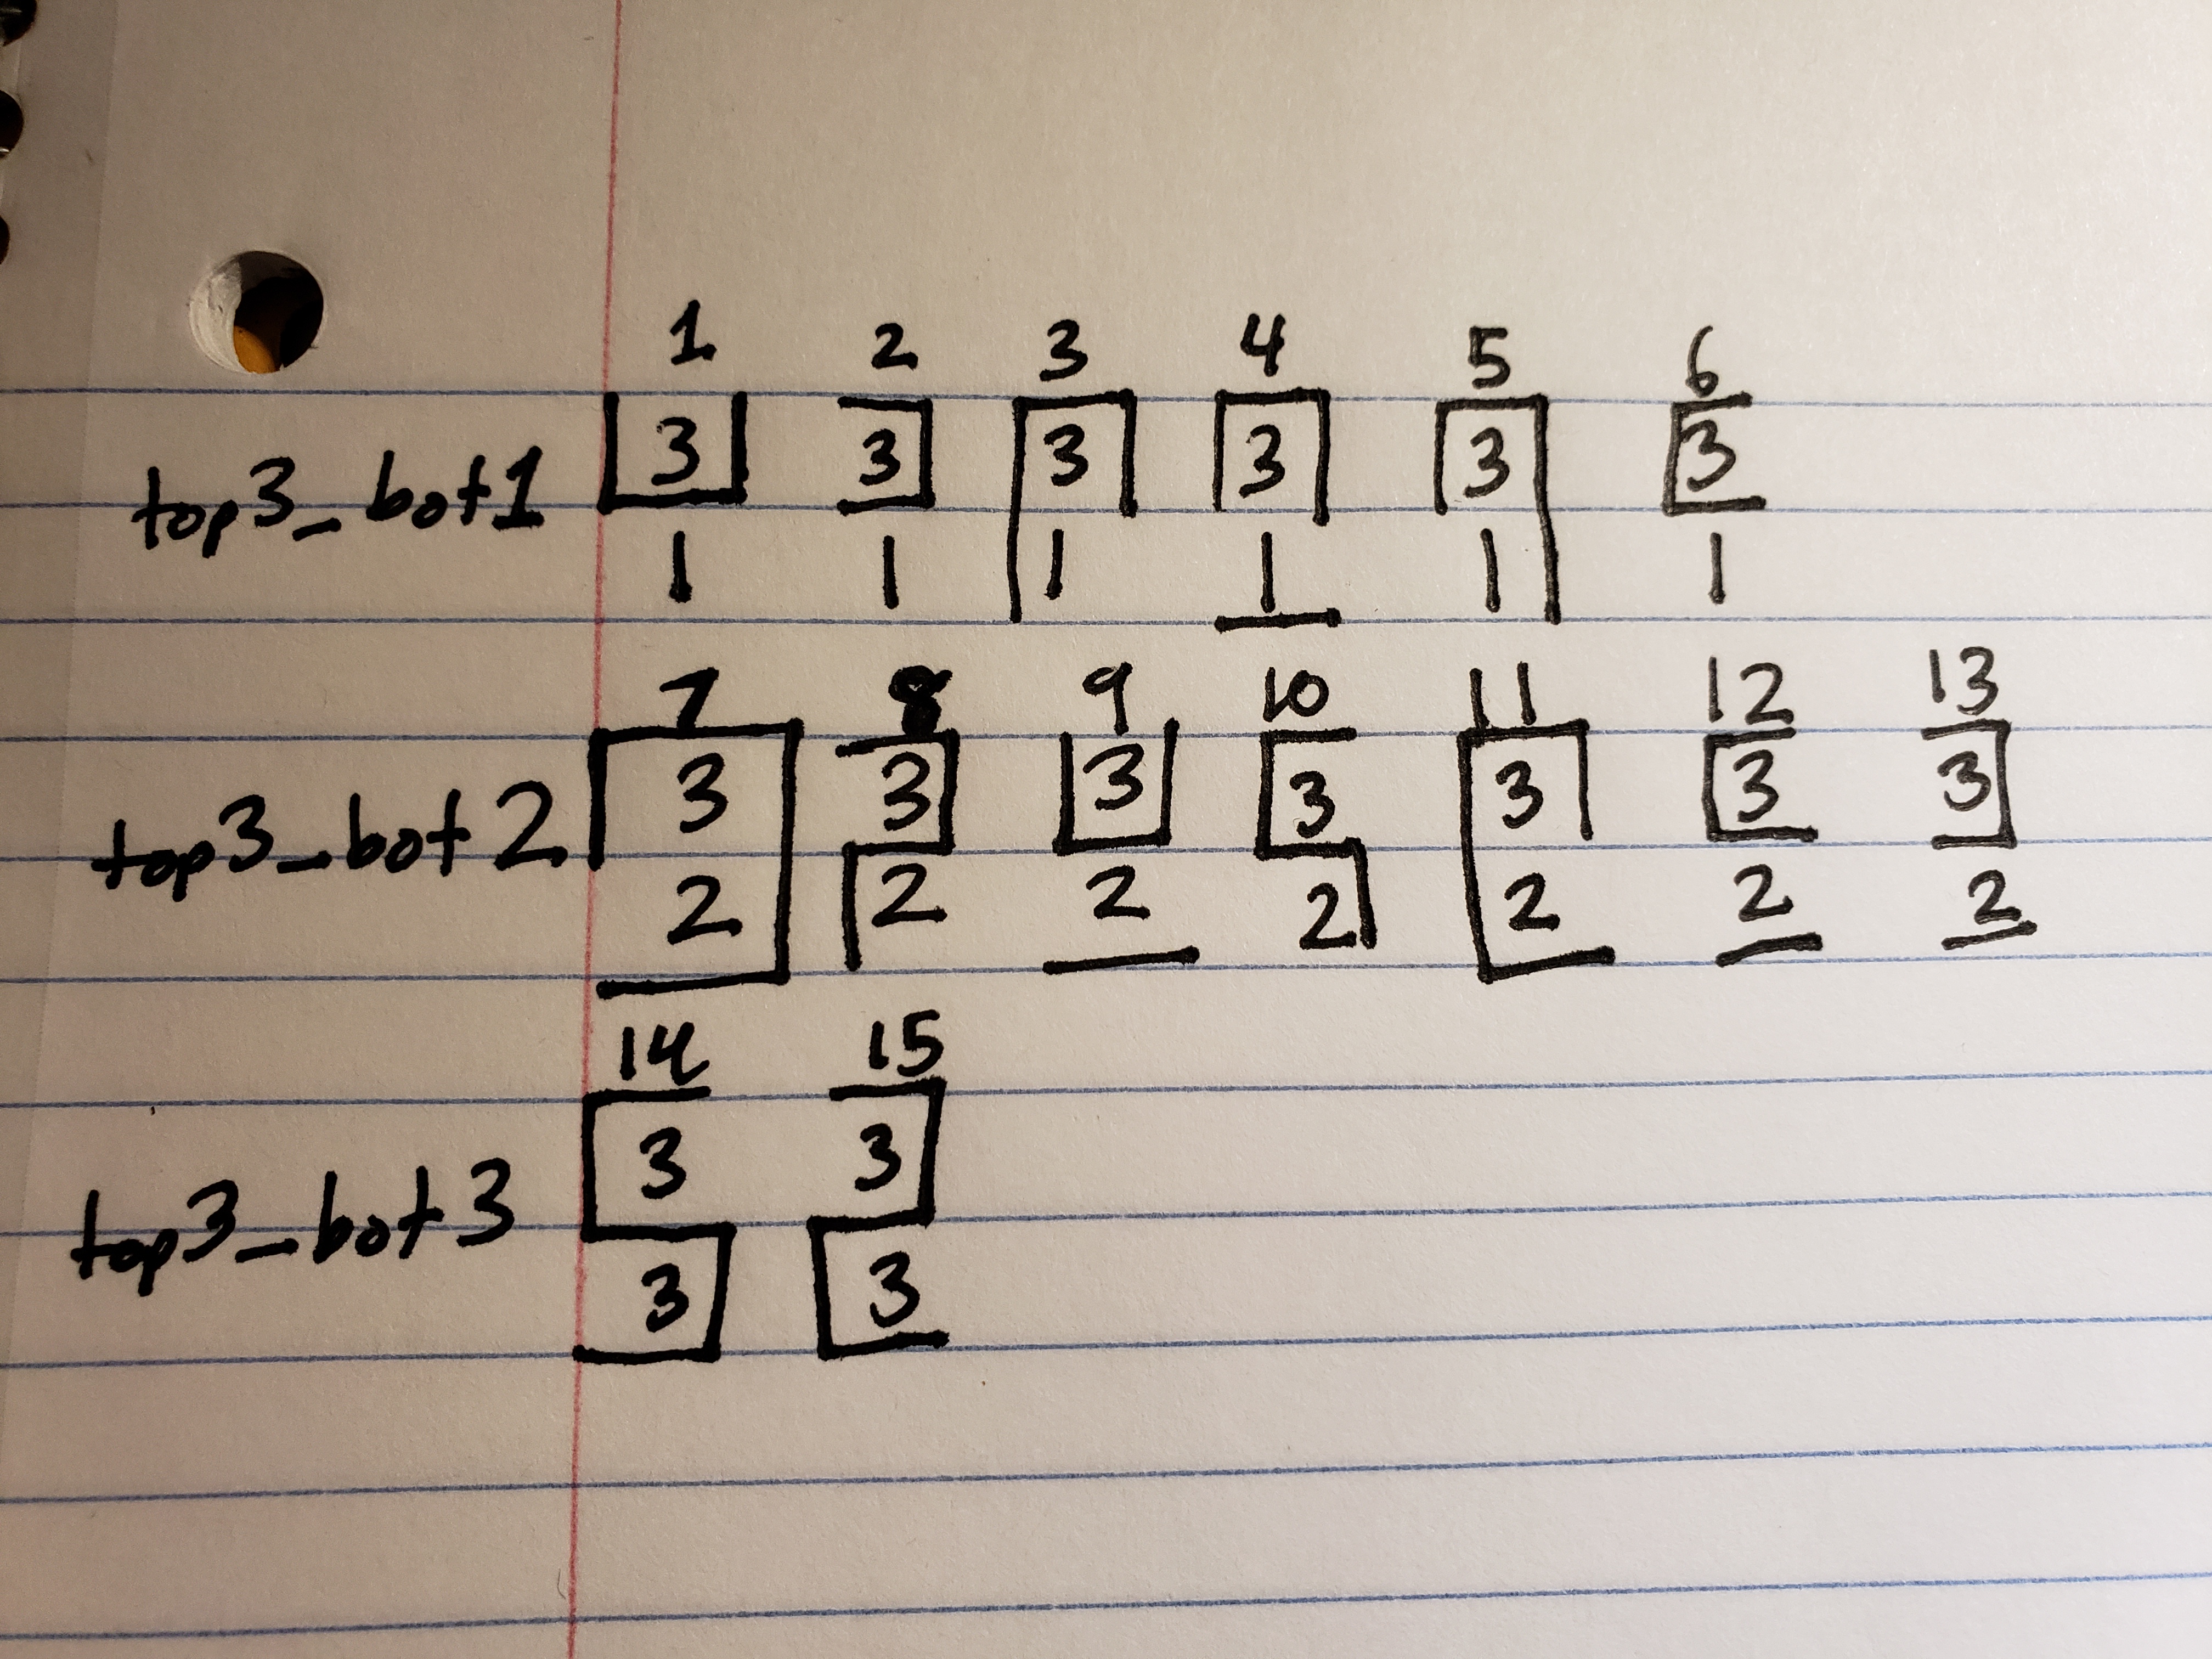 1 2 3 4 5 6
top3_bot1 3 3 3 3 3 3
1 1 1 1 1 1
7 8 9 10 11 12 13
top3_bot2 3 3 3 3 3 3 3
2 2 2 2 2 2 2
14 15
3 3
top3_bot3
3 3